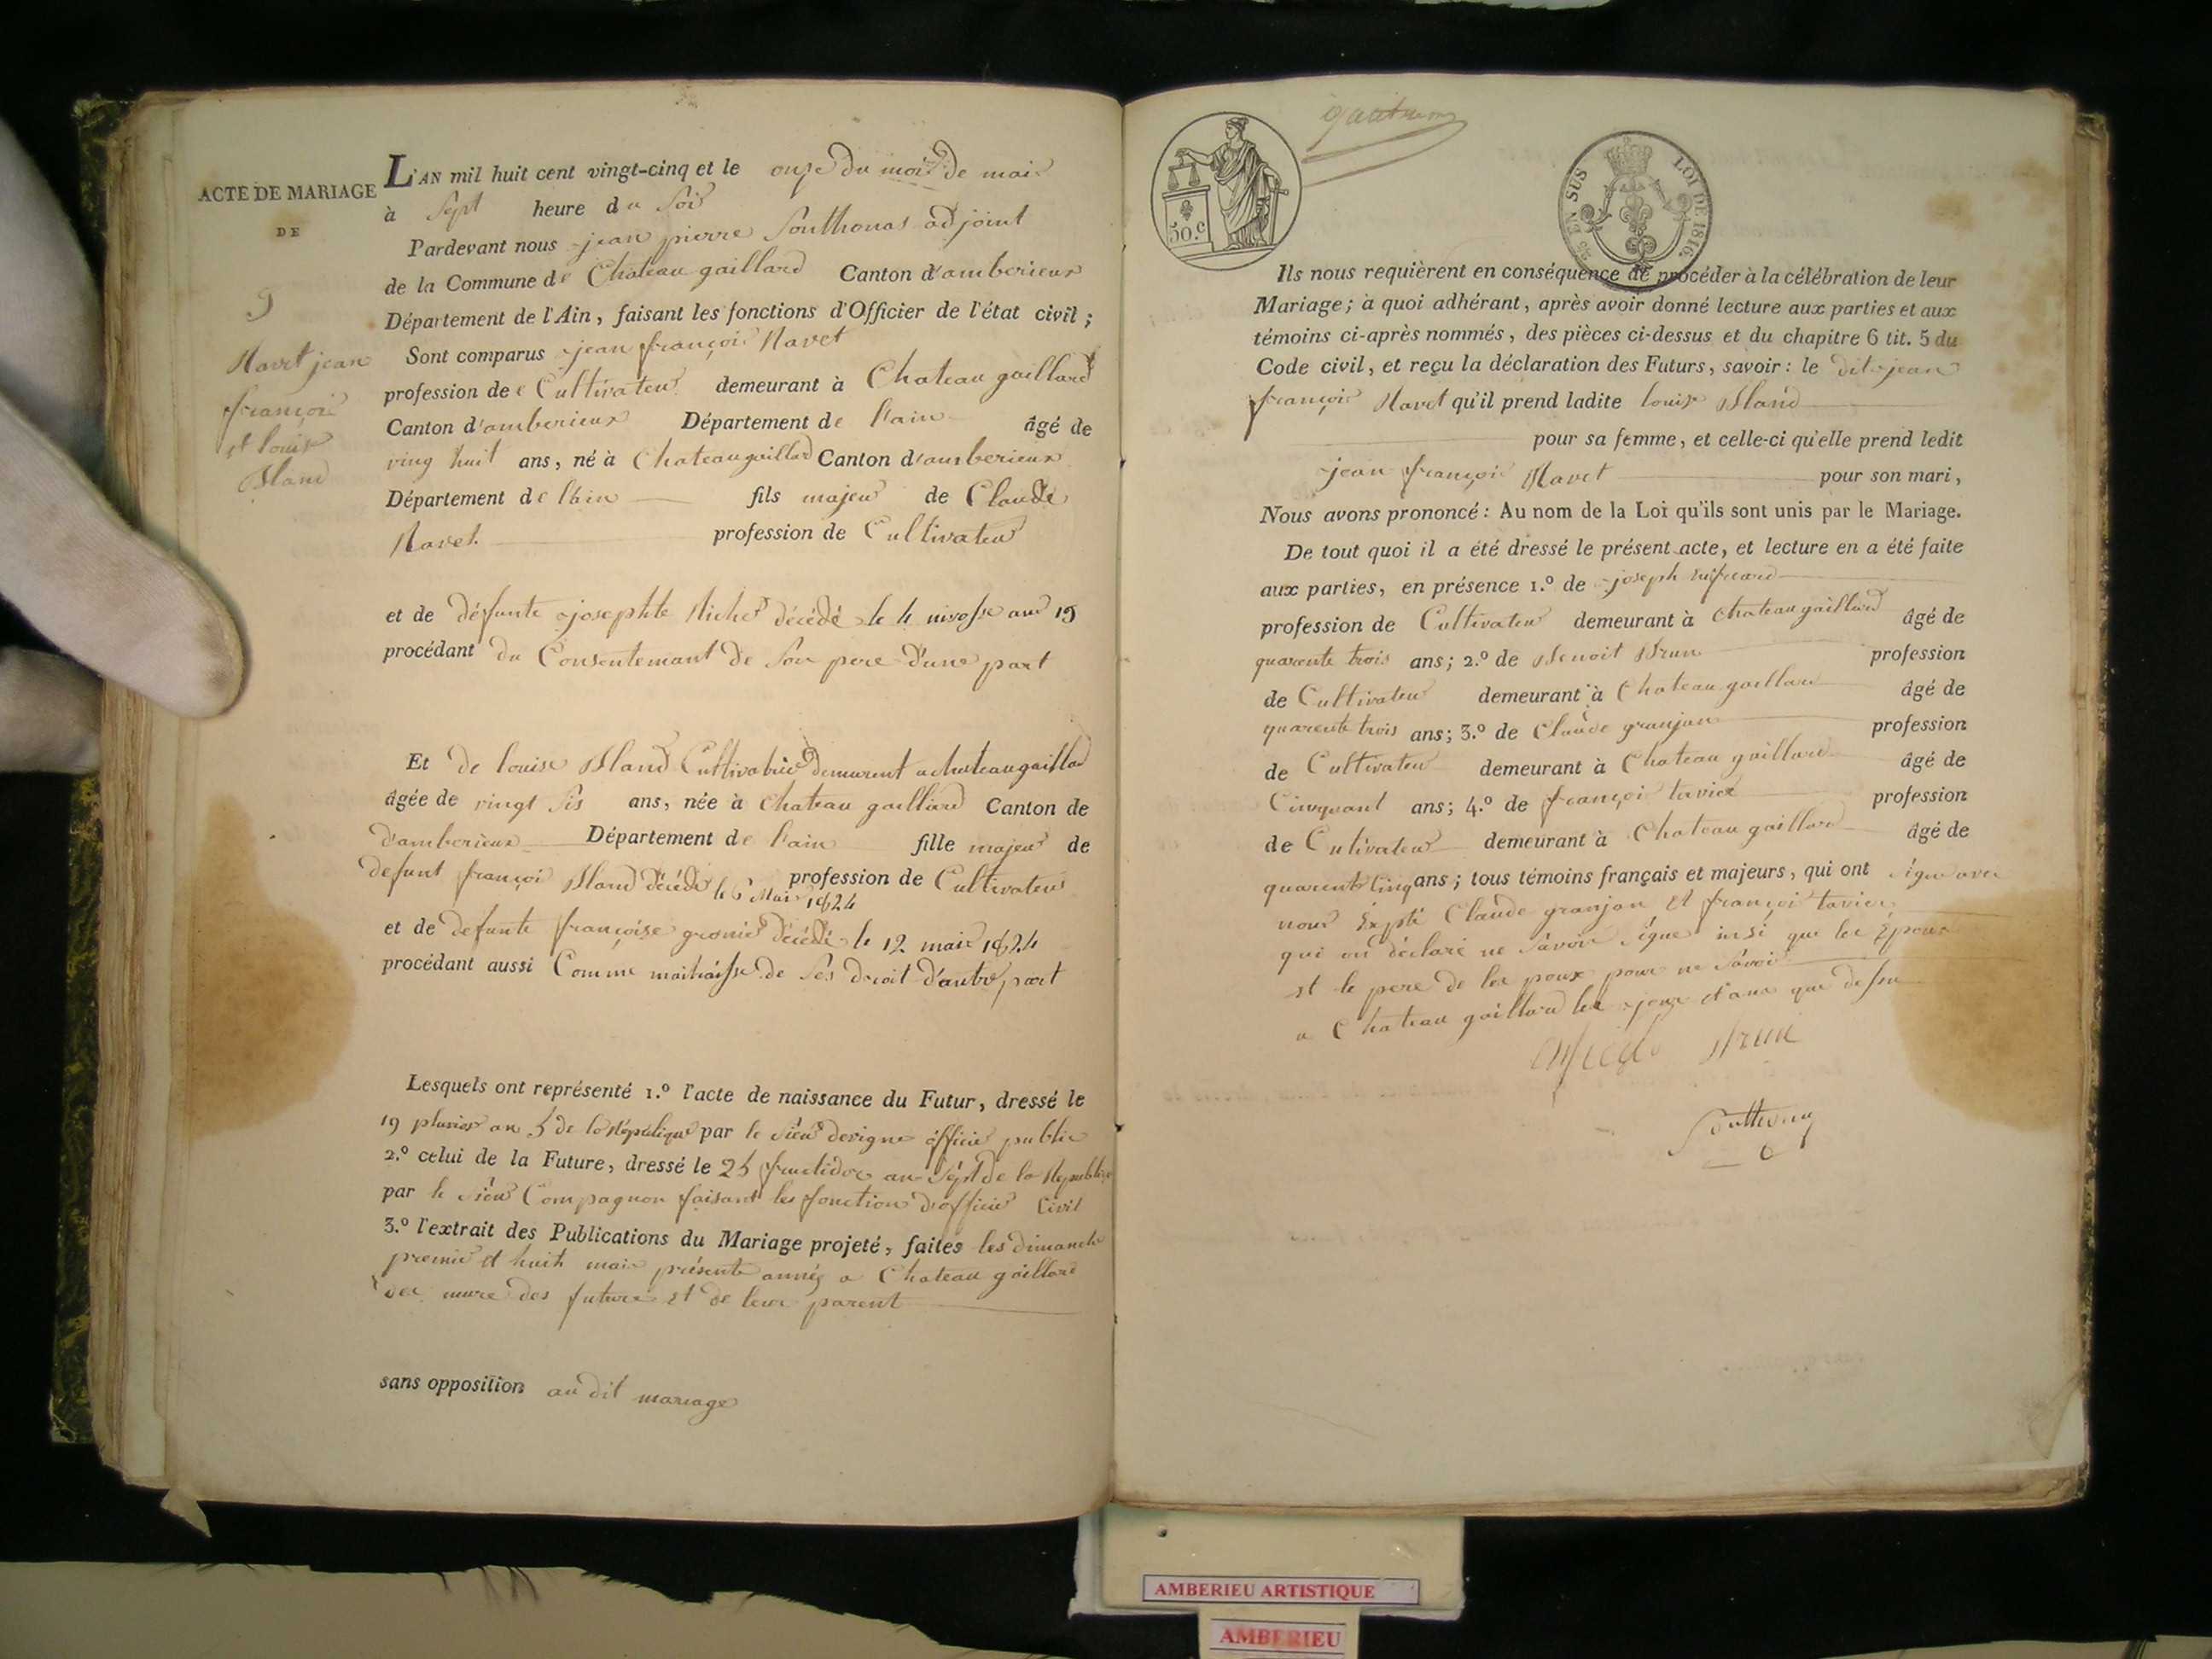 ACTE DE MARIAGE
DE
9
Ravet jean
françois
et louise
Bland
L'AN mil huit cent vingt-cinq et le onze du mois de mais
à sept heure du soir
Pardevant nous jean pierre Southonas adjoint
de la Commune de Chateau gaillard Canton d'amberieux
Département de l'Ain, faisant les fonctions d'Officier de l'état civil;
Sont comparus jean françois Ravet
profession de Cultivateur demeurant à Chateau gaillard
Canton d'amberieux Département de l'ain âgé de
ving huit ans, né à Chateaugaillard Canton d'amberieux
Département de l'ain fils majeur de Claude
Ravet profession de Cultivateur
et de défunte josephte décédé le 4 nivosse an 13
procédant du Consentemant de son pere d'une part
Et de louise Bland Cultivatrice demeurent a chateaugaillad
âgée de vingt sis ans, née à Chateau gaillard Canton de
d'amberieux Département de l'ain fille majeur de
defunt françoi Bland décédé le 6 Mai 1824 profession de Cultivateur
et de defunte françoise décédé le 12 mais 1824
procédant aussi Comme maitraisse de ses droit d'autre part
Lesquels ont représenté 1.º l'acte de naissance du Futur, dressé le
19 pluvios an 5 de la République par le sieur officié public
2.º celui de la Future, dressé le 25 fructidor an sept de la Republiq
par le sieur Compagnon faisant les fonction d'officier Civil
3.º l'extrait des Publications du Mariage projeté, faites les dimanche
premie et huit mais présente année a Chateau gaillard
des future et de leur parent
sans opposition au dit mariage
50.c
EN SUS LOI DE 1816.
Ils nous requièrent en conséquence de procéder à la célébration de leur
Mariage; à quoi adhérant, après avoir donné lecture aux parties et aux
témoins ci-après nommés, des pièces ci-dessus et du chapitre 6 tit. 5 du
Code civil, et reçu la déclaration des Futurs, savoir: le dit jean
françois Ravet qu'il prend ladite louise Bland
pour sa femme, et celle-ci qu'elle prend ledit
jean françois Ravet pour son mari,
Nous avons prononcé: Au nom de la Loi qu'ils sont unis par le Mariage.
De tout quoi il a été dressé le présent acte, et lecture en a été faite
aux parties, en présence 1.º de joseph
profession de Cultivateur demeurant à Chateau gaillard âgé de
quarente trois ans; 2.º de Benoit Brun profession
de Cultivateur demeurant à Chateau gaillard âgé de
quarente trois ans; 3.º de Claude granjan profession
de Cultivateur demeurant à Chateau gaillard âgé de
Cinquant ans; 4.º de françoi tavier profession
de Cutivateur demeurant à Chateau gaillard âgé de
quarente cinq ans; tous témoins français et majeurs, qui ont signe avec
nous Expté Claude granjan et françoi tavier
qui on déclaré ne savoir signé insi que les Epoux
et le pere de les poux pour ne savoir
a Chateau gaillard les jour et ans que dessu
Brun
AMBERIEU ARTISTIQUE
AMBERIEU